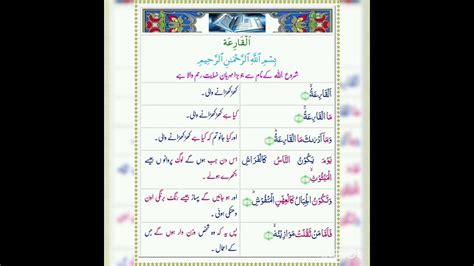 اَلْقَارِعَة
بِسْمِ اللّٰهِ الرَّحْمٰنِ الرَّحِيْمِ
شروع اللہ کے نام سے جو بڑا مہربان نہایت رحم والا ہے
اَلْقَارِعَةُ ۙ کھڑکھڑانے والی۔
مَا الْقَارِعَةُ ۚ کیا ہے کھڑکھڑانے والی۔
وَمَاۤ اَدْرٰىكَ مَا الْقَارِعَةُ ؕ اور کیا جانو تم کہ کیا ہے کھڑکھڑانے والی۔
يَوْمَ يَكُوْنُ النَّاسُ كَالْفَرَاشِ اس دن جب ہوں گے لوگ پروانوں جیسے
الْمَبْثُوْثِ ۙ بکھرے ہوئے۔
وَتَكُوْنُ الْجِبَالُ كَالْعِهْنِ الْمَنْفُوْشِ ؕ اور ہو جائیں گے پہاڑ جیسے رنگ برنگی اون
دھنکی ہوئی۔
فَاَمَّا مَنْ ثَقُلَتْ مَوَازِيْنُهٗ ۙ پس یہ کہ وہ شخص وزن دار ہوں گے جس
کے اعمال۔